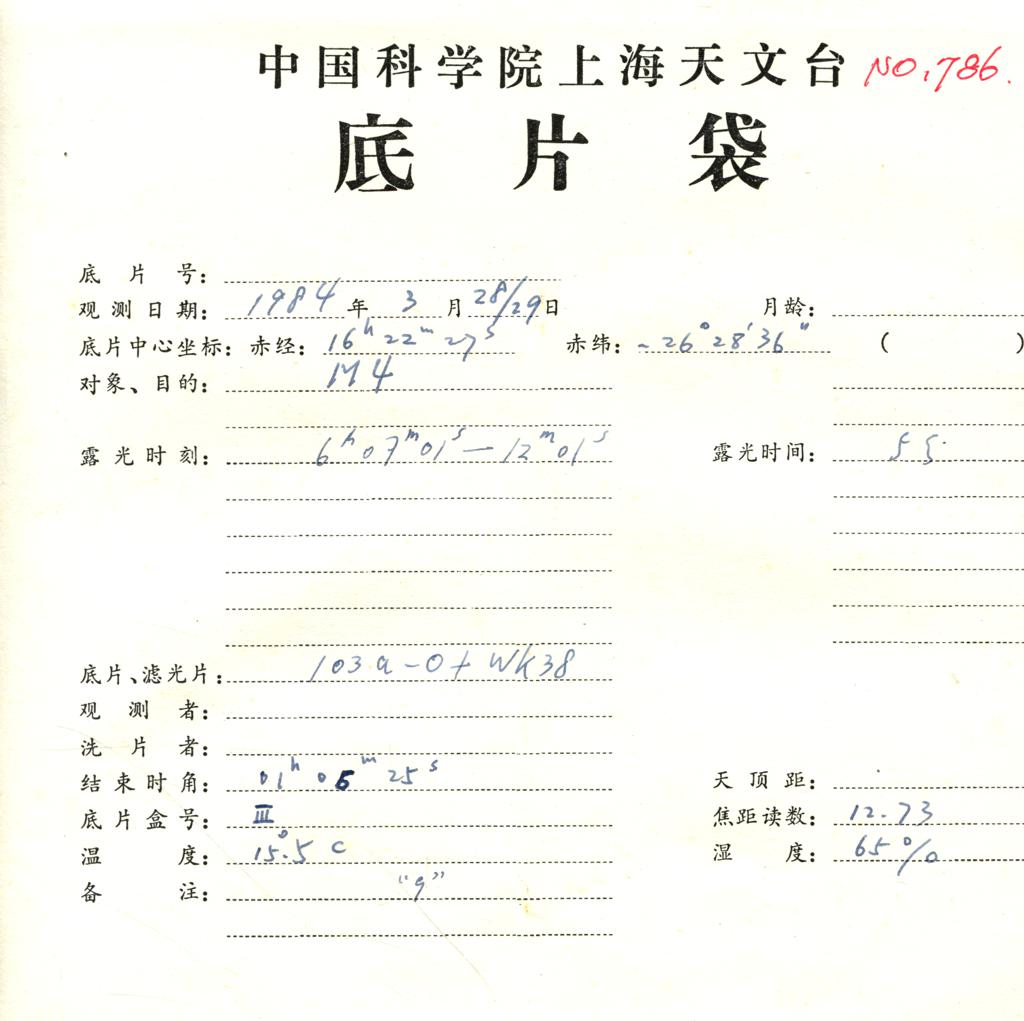 中国科学院上海天文台 NO.786.
底片袋
底片号:
观测日期: 1984年3月28/29日 月龄:
底片中心坐标: 赤经: 16h22m27s 赤纬: -26°28′36″ ( )
对象、目的: M4
露光时刻: 6h07m01s—12m01s 露光时间:
底片、滤光片: 103a-O+WK38
观测者:
洗片者:
结束时角: 01h05m25s 天顶距:
底片盒号: III 焦距读数: 12.73
温度: 15°.5C 湿度: 65%
备注: “9”